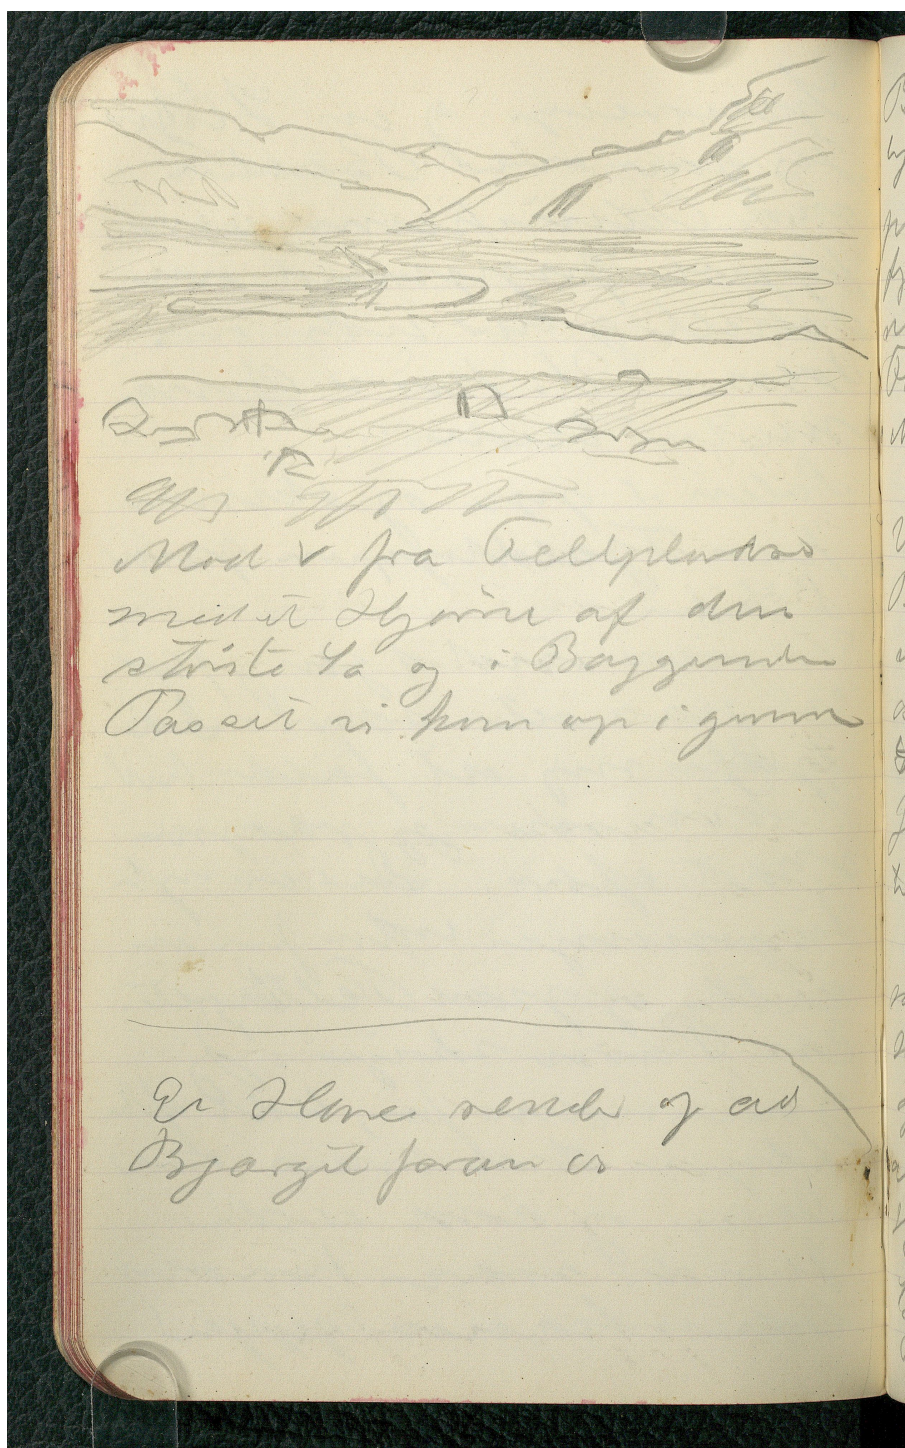 Mod V fra Teltpladsen
med et Hjørne af den
største Sø og i Baggrunden
Passet vi kom op i gennem
En Hare render op ad
Bjærget foran os